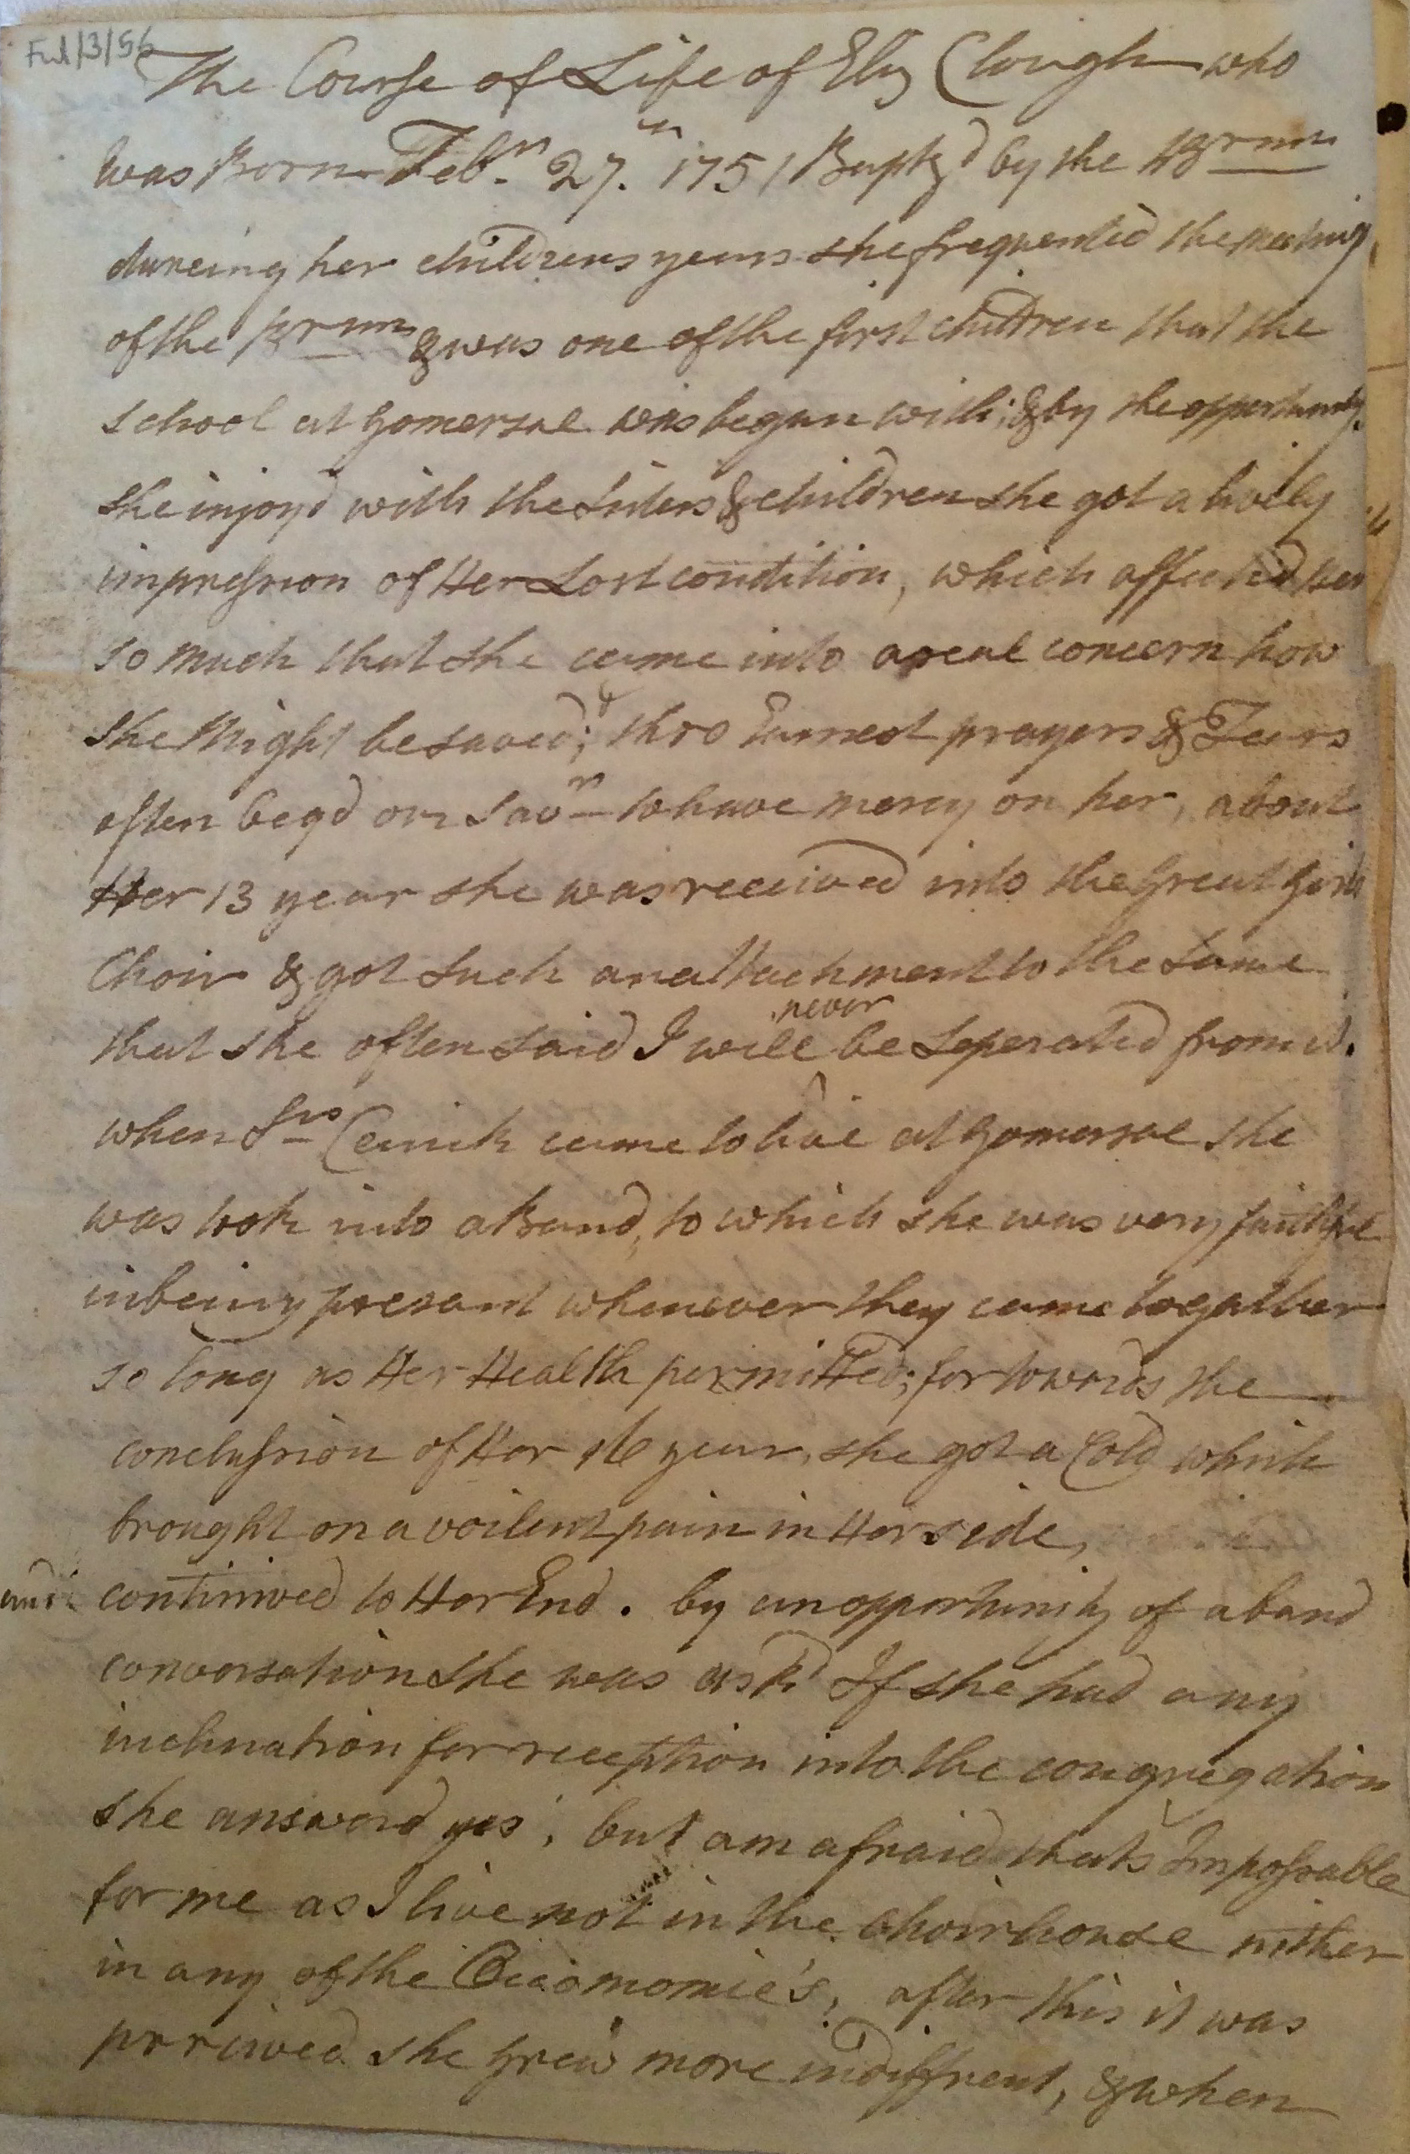 Ful/3/56
The Course of Life of Eliz Clough who
was Born Febry 27.th 1751 Baptz'd by the Brnn
dureing her childrens years she frequented the meeting
of the Brnn & was one of the first children that the
School at Gomersal was begun with; & by the opportunity
she injoyd with the Sisters & children she got a lively
impression of Her Lost condition, which affected her
so much that she came into a real concern how
she Might be saved; & thro Earnest prayers & Tears
often begd our Savr to have mercy on her, about
Her 13 year she was received into the Great Girls
Choir & got such an attachment to the same
that she often said I will never be seperated from it.
when Srs Cennick came to live at Gomersal she
was took into a Band, to which she was very faithful
in being presant whenever they came together
so long as Her Health permitted; for towards the
conclussion of Her 16 year, she got a Cold which
brought on a voilent pain in Her side,
and continived to Her End. by an opportunity of a band
conversation she was ask'd If she had any
inclination for reception into the congregation
she answerd yes, but am afraid thats Impossable
for me as I live not in the choirhouse nither
in any of the Oecomomie's, after this it was
prrcived she grew more indiffrent, & when